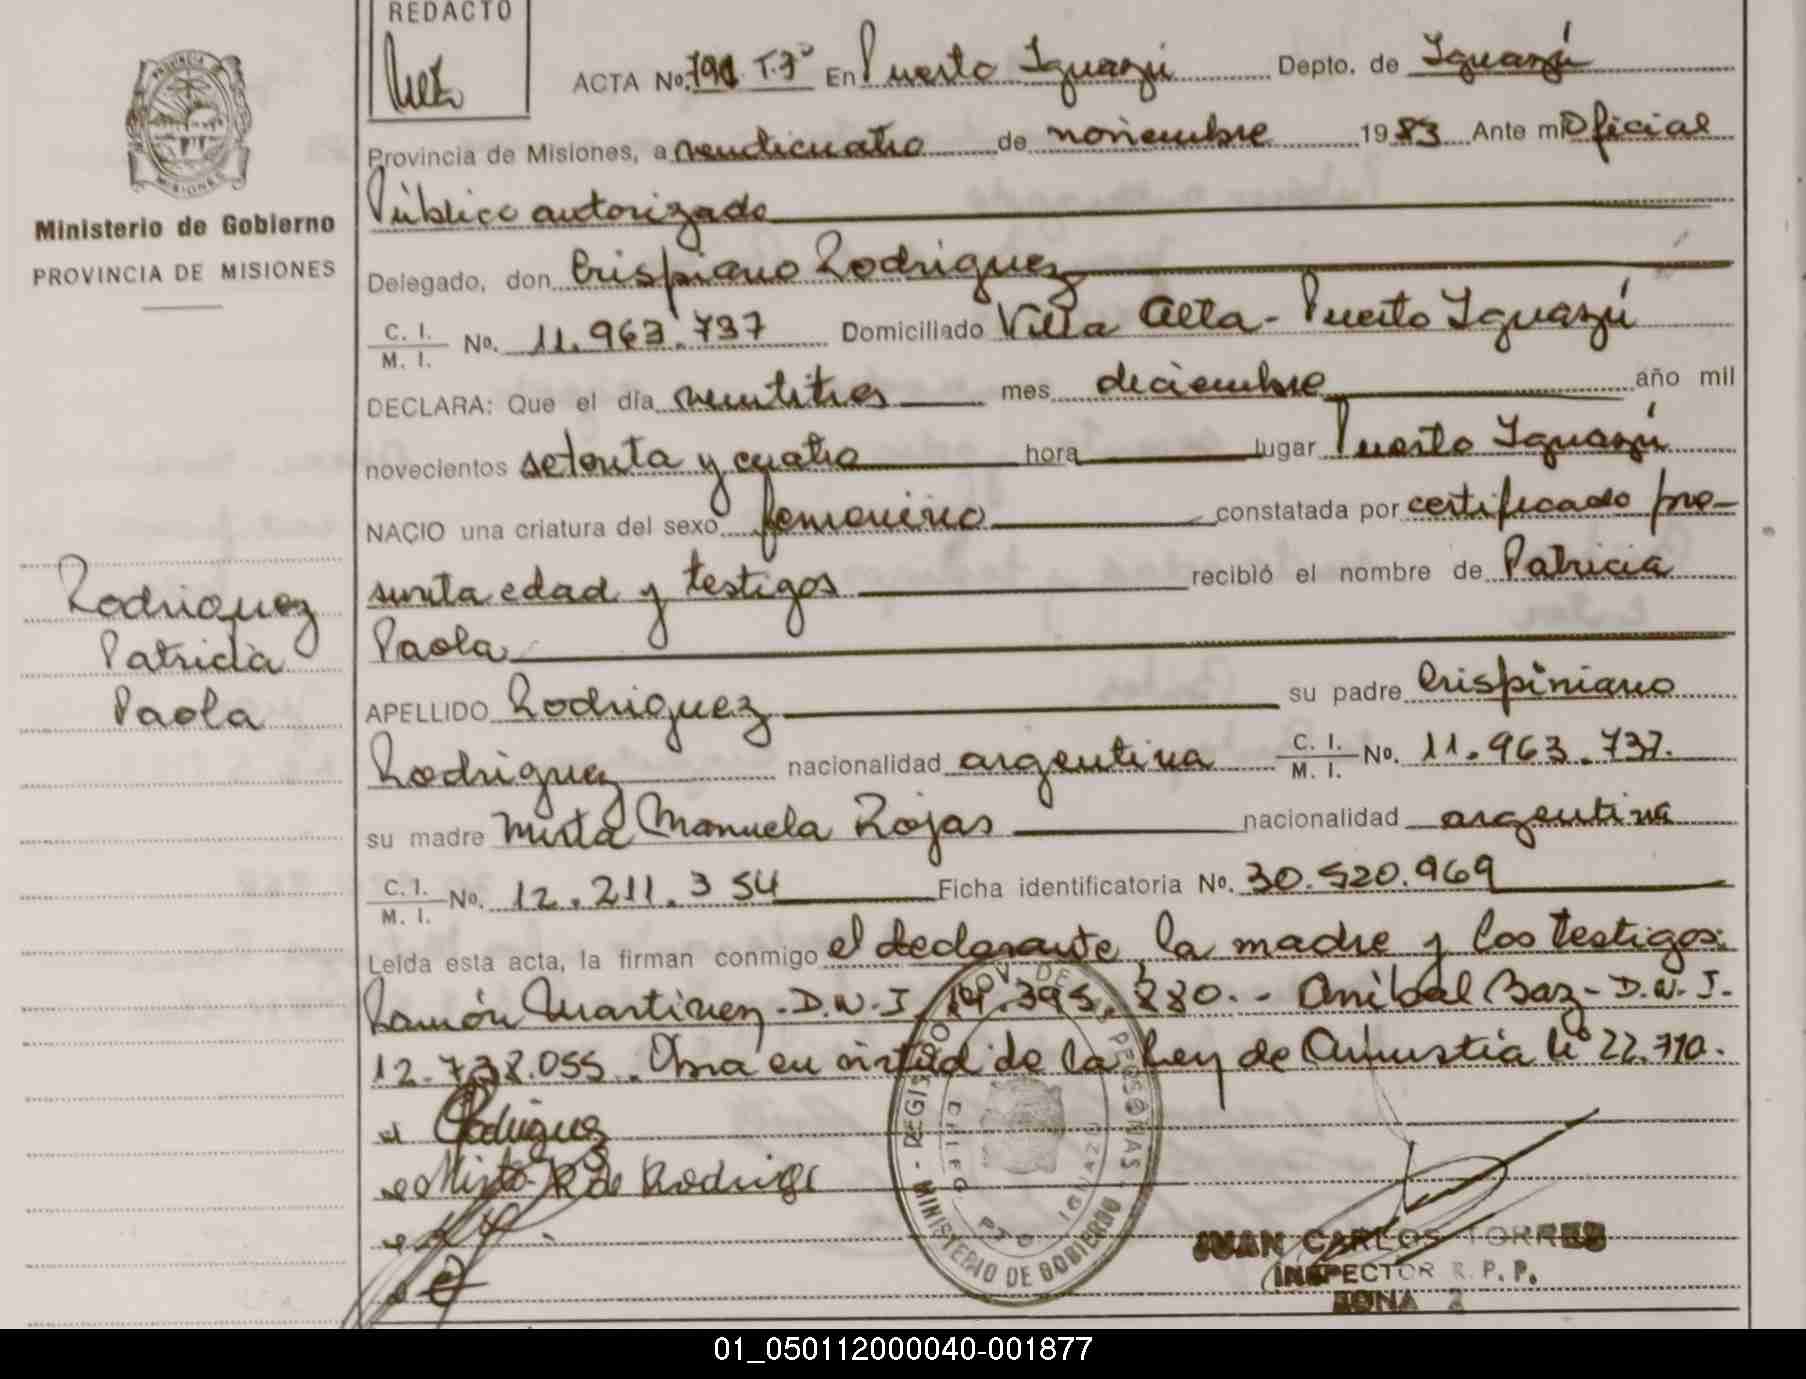 REDACTO
PROVINCIA DE
MISIONES
Ministerio de Gobierno
PROVINCIA DE MISIONES
Rodriguez
Patricia
Paola
ACTA No. 791 T.3º En Puerto Iguazú Depto. de Iguazú
Provincia de Misiones, a venticuatro de noviembre 1983 Ante mi Oficial
Público autorizado
Delegado, don Crispiano Rodriguez
C. I. / M. I. No. 11.963.737 Domiciliado Villa Alta - Puerto Iguazú
DECLARA: Que el día ventitres mes deciembre año mil
novecientos setenta y cuatro hora lugar Puerto Iguazú
NACIO una criatura del sexo femenino constatada por certificado pre-
sunta edad y testigos recibió el nombre de Patricia
Paola
APELLIDO Rodriguez su padre Crispiniano
Rodriguez nacionalidad argentina C. I. / M. I. No. 11.963.737.
su madre Mirta Manuela Rojas nacionalidad argentina
C. I. / M. I. No. 12.211.354 Ficha identificatoria No. 30.520.969
Leída esta acta, la firman conmigo el declarante, la madre y los testigos:
Ramón Martinez - D.N.I. 14.395.280. - Anibal Baz - D.N.I.
12.738.055. Obra en virtud de la Ley de Amnistia Nº 22.710.
Rodriguez
Mirta R de Rodrigz
REGISTRO PROV. DE LAS PERSONAS
MINISTERIO DE GOBIERNO
PTO IGUAZU
JUAN CARLOS TORRES
INSPECTOR R. P. P.
ZONA 2
01_050112000040-001877